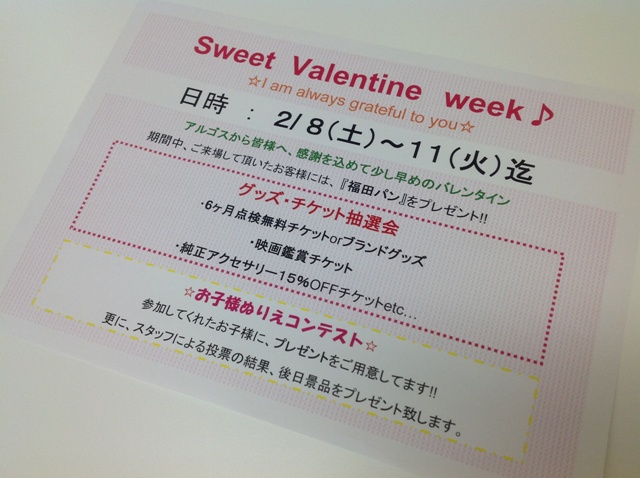 Sweet Valentine week♪
☆I am always grateful to you☆
日時 : 2/8(土)～11(火)迄
アルゴスから皆様へ、感謝を込めて少し早めのバレンタイン
期間中、ご来場して頂いたお客様には、『福田パン』をプレゼント!!
グッズ・チケット抽選会
・6ヶ月点検無料チケットorブランドグッズ
・映画鑑賞チケット
・純正アクセサリー15%OFFチケットetc…
☆お子様ぬりえコンテスト☆
参加してくれたお子様に、プレゼントをご用意してます!!
更に、スタッフによる投票の結果、後日景品をプレゼント致します。